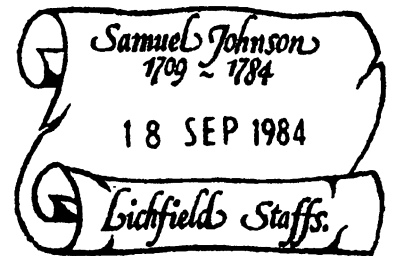 Samuel Johnson
1709 ~ 1784
18 SEP 1984
Lichfield Staffs.